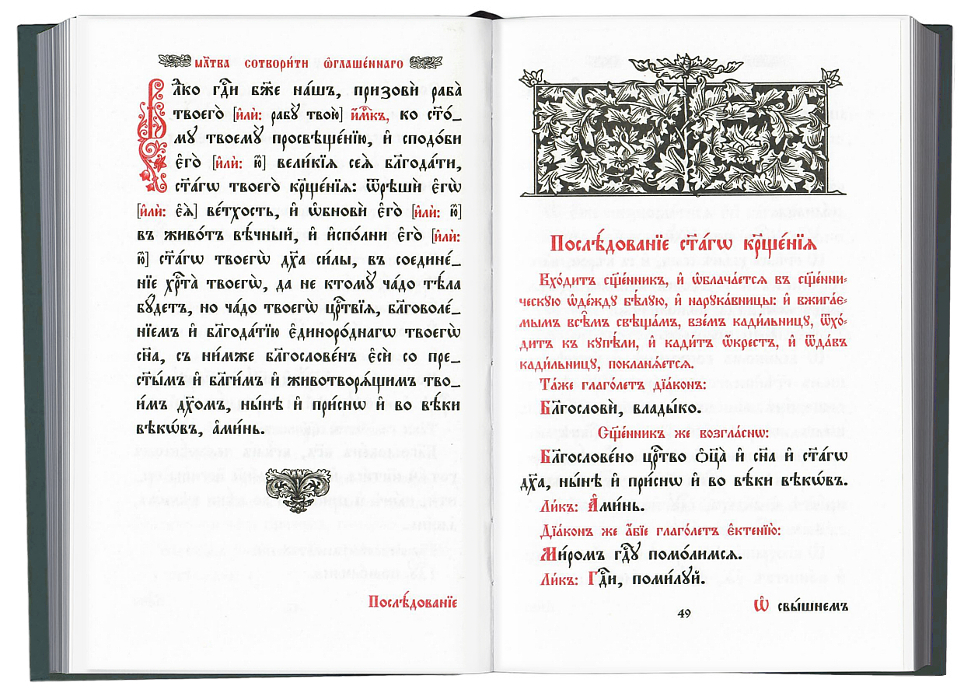 мл҃тва сотвори́ти ѡ҆глаше́ннаго
Влⷣко гдⷭ҇и бж҃е на́шъ, призовѝ раба̀
твоего̀ [и҆лѝ: рабꙋ̀ твою̀] и҆́мкъ, ко ст҃о́-
мꙋ твоемꙋ̀ просвѣще́нїю, и҆ сподо́би
є҆го̀ [и҆лѝ: ю҆̀] вели́кїѧ сеѧ̀ блгⷣода́ти,
ст҃а́гѡ твоегѡ̀ крⷭ҇ще́нїѧ: ѿрѣшѝ є҆гѡ̀
[и҆лѝ: є҆ѧ̀] ве́тхость, и҆ ѡ҆бновѝ є҆го̀ [и҆лѝ: ю҆̀]
въ живо́тъ вѣ́чный, и҆ и҆спо́лни є҆го̀ [и҆лѝ:
ю҆̀] ст҃а́гѡ твоегѡ̀ дх҃а си́лы, въ соедине́-
нїе хрⷭ҇та̀ твоегѡ̀, да не ктомꙋ̀ ча́до тѣ́ла
бꙋ́детъ, но ча́до твоегѡ̀ црⷭ҇твїѧ, бл҃говоле́-
нїемъ и҆ блгⷣода́тїю є҆диноро́днагѡ твоегѡ̀
сн҃а, съ ни́мже бл҃гослове́нъ є҆сѝ со пре-
ст҃ы́мъ и҆ бл҃ги́мъ и҆ животворѧ́щимъ тво-
и́мъ дх҃омъ, ны́нѣ и҆ при́снѡ и҆ во вѣ́ки
вѣкѡ́въ, а҆ми́нь.
Послѣ́дованїе
Послѣ́дованїе ст҃а́гѡ крⷭ҇ще́нїѧ
Вхо́дитъ сщ҃е́нникъ, и҆ ѡ҆блача́етсѧ въ сщ҃е́нни-
ческꙋю ѻ҆де́ждꙋ бѣ́лꙋю, и҆ нарꙋка́вницы: и҆ вжига́є-
мымъ всѣ̑мъ свѣща́мъ, взе́мъ кади́льницꙋ, ѿхо́-
дитъ къ кꙋпѣ́ли, и҆ кади́тъ ѡ҆́крестъ, и҆ ѿда́въ
кади́льницꙋ, покланѧ́етсѧ.
Та́же глаго́летъ дїа́конъ:
Благословѝ, влады́ко.
Сщ҃е́нникъ же возгла́снѡ:
Благослове́но црⷭ҇тво ѻ҆ц҃а̀ и҆ сн҃а и҆ ст҃а́гѡ
дх҃а, ны́нѣ и҆ при́снѡ и҆ во вѣ́ки вѣкѡ́въ.
Ли́къ: А҆ми́нь.
Дїа́конъ же а҆́бїе глаго́летъ є҆ктенїю̀:
Ми́ромъ гдⷭ҇ꙋ помо́лимсѧ.
Ли́къ: Гдⷭ҇и, поми́лꙋй.
49
Ѡ҆ свы́шнемъ